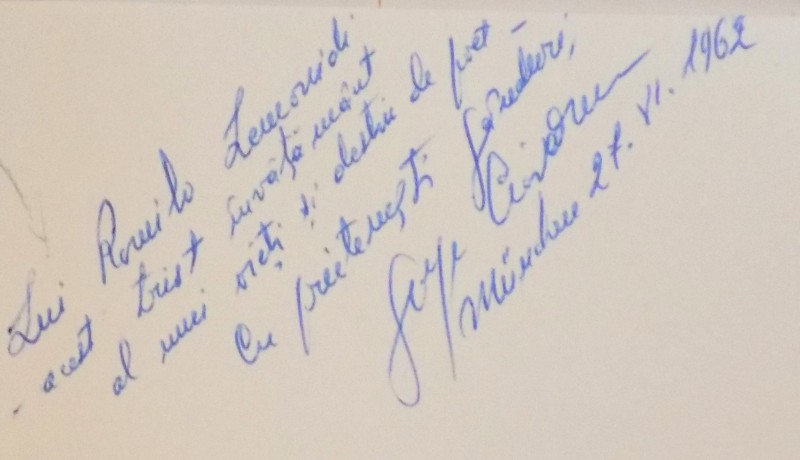 Lui Romilo Lemonidi
- acest trist învățămînt
al unei vieți și destin de poet -
Cu prietenești gînduri,
München 27. VI. 1962